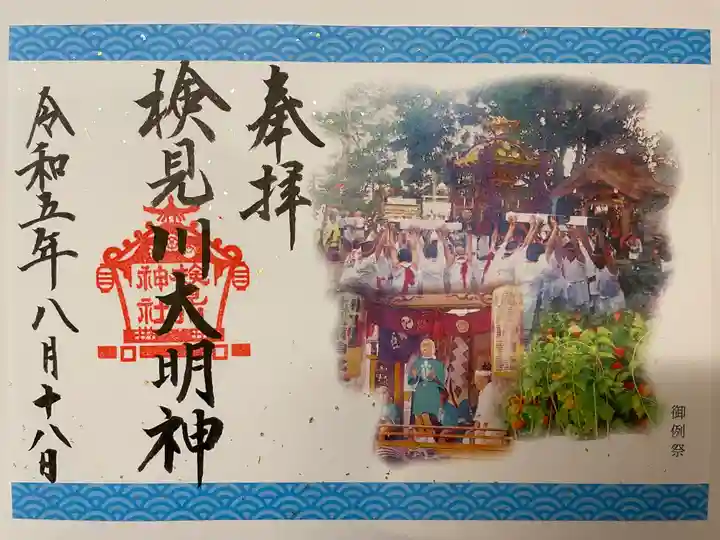 奉拝
検見川大明神
検見川
神社
令和五年八月十八日
御例祭